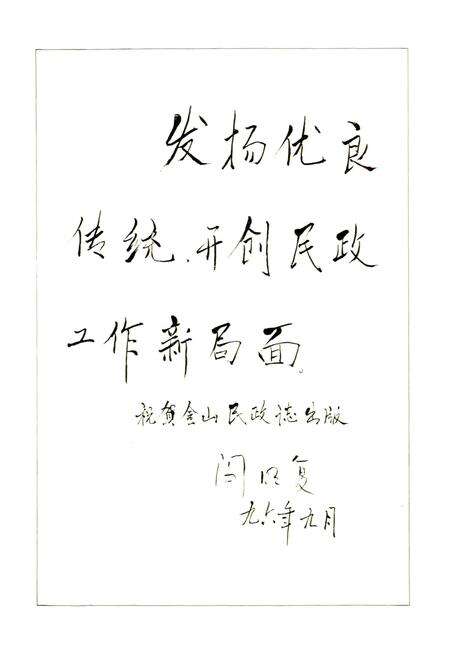 发扬优良
传统、开创民政
工作新局面。
祝贺金山民政志出版
阎明复
九六年九月